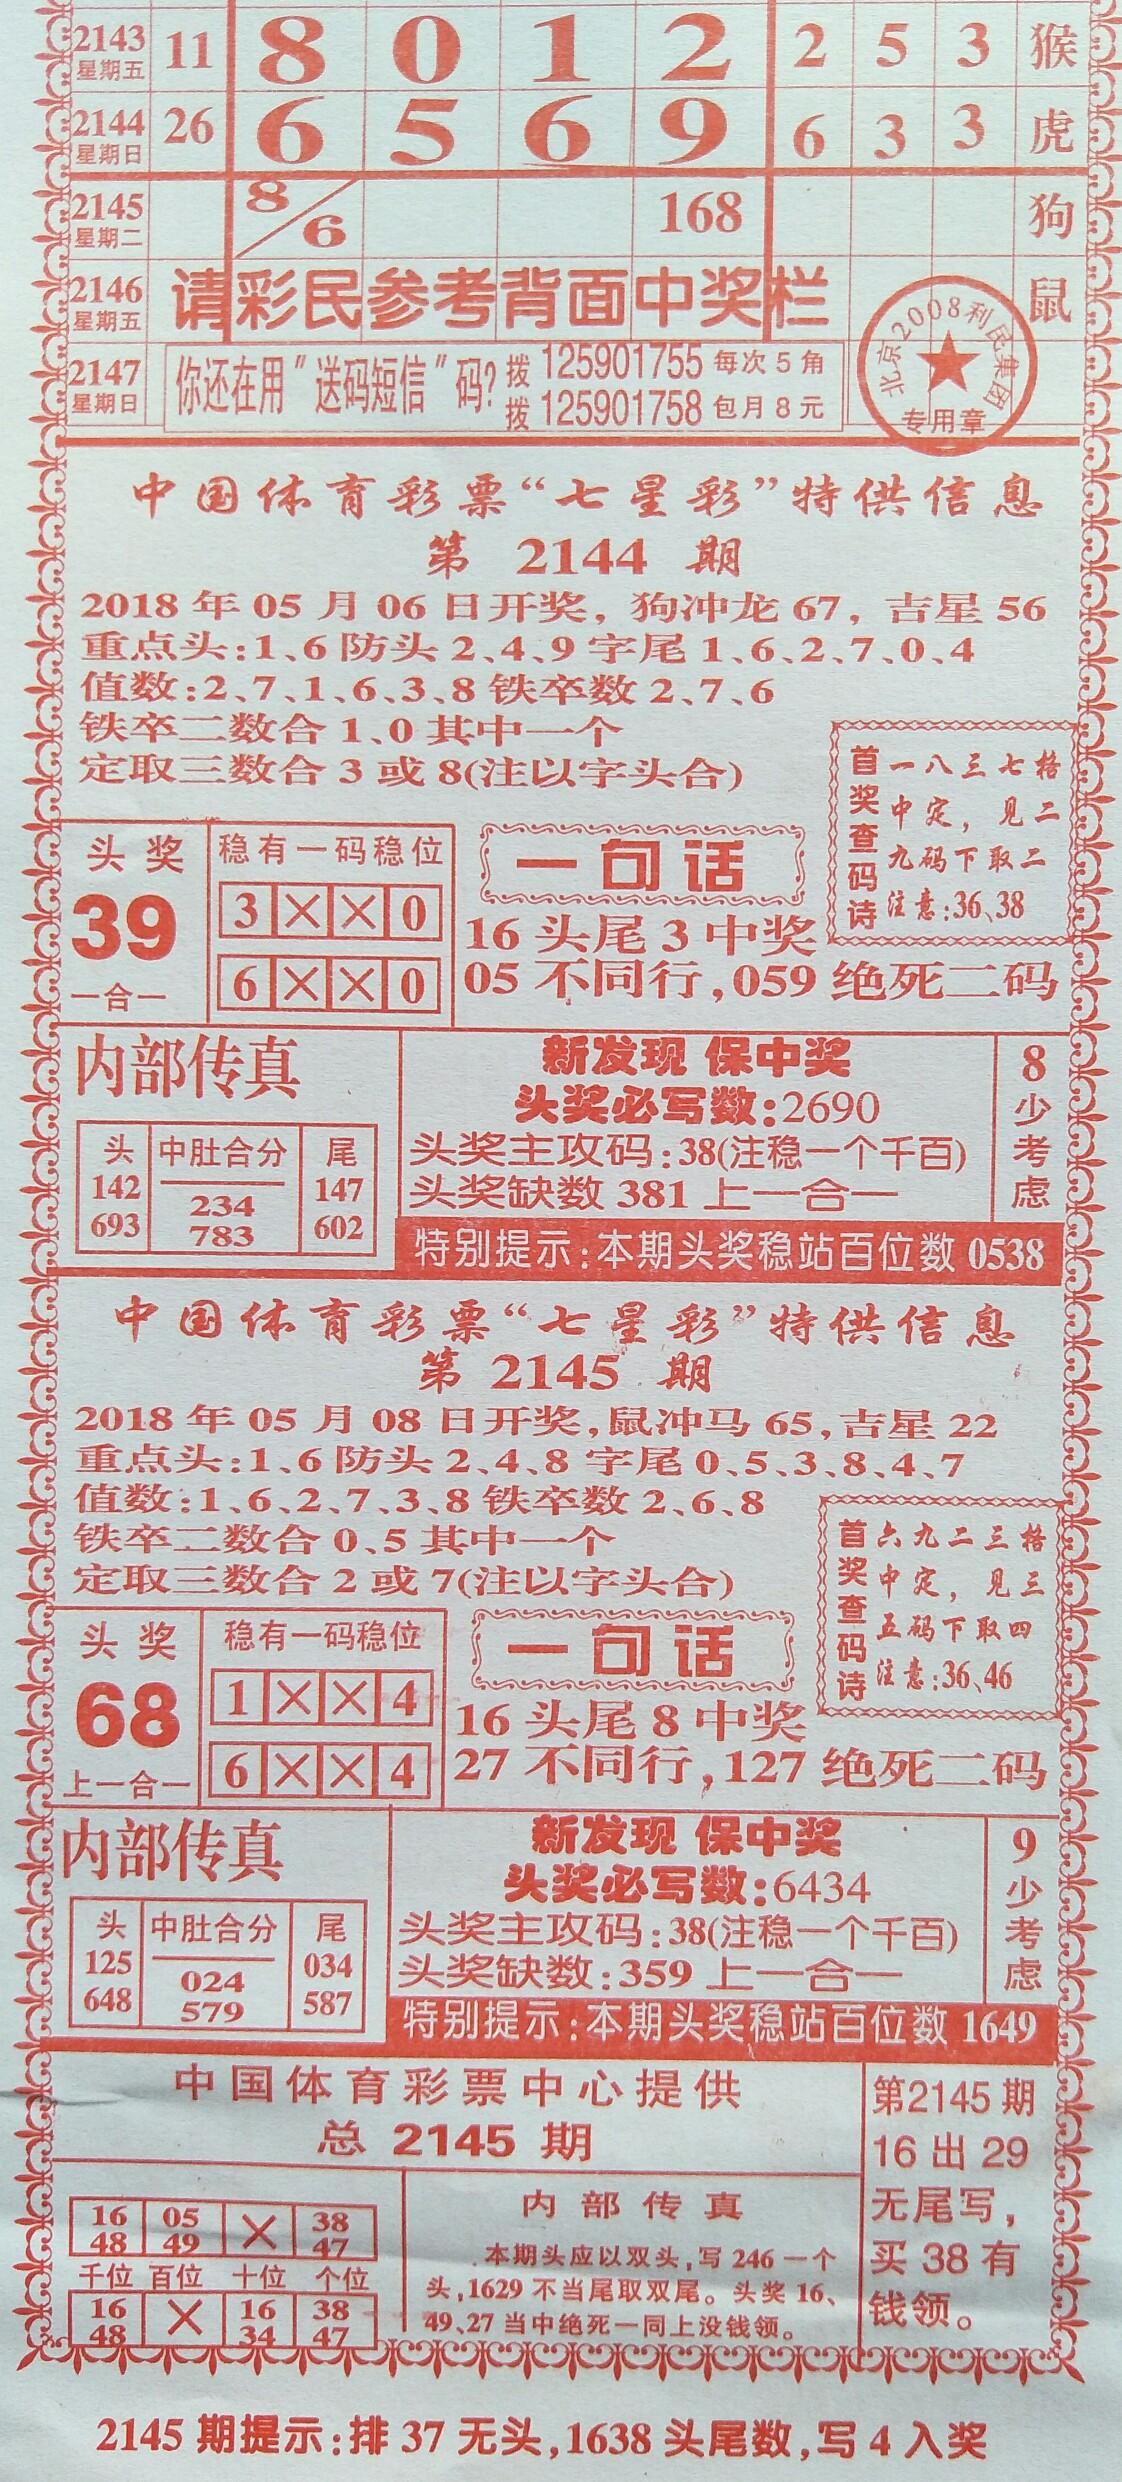 2143 11 8 0 1 2 2 5 3 猴
星期五
2144 26 6 5 6 9 6 3 3 虎
星期日
2145 8/6 168 狗
星期二
2146 请彩民参考背面中奖栏 鼠
星期五
2147 你还在用"送码短信"码? 拨 125901755 每次5角
星期日 拨 125901758 包月8元
北京2008利民集团
专用章
中国体育彩票“七星彩”特供信息
第 2144 期
2018年05月06日开奖, 狗冲龙67, 吉星56
重点头:1、6防头2、4、9字尾1、6、2、7、0、4
值数:2、7、1、6、3、8铁卒数2、7、6
铁卒二数合1、0其中一个
定取三数合3或8(注以字头合)
首奖查码诗
一八三七格
中定, 见二
九码下取二
注意:36、38
头奖
39
一合一
稳有一码稳位
3××0
6××0
一句话
16头尾3中奖
05不同行,059绝死二码
内部传真
头 中肚合分 尾
142 234 147
693 783 602
新发现 保中奖
头奖必写数:2690
头奖主攻码:38(注稳一个千百)
头奖缺数381上一合一
8少考虑
特别提示:本期头奖稳站百位数0538
中国体育彩票“七星彩”特供信息
第 2145 期
2018年05月08日开奖,鼠冲马65,吉星22
重点头:1、6防头2、4、8字尾0、5、3、8、4、7
值数:1、6、2、7、3、8铁卒数2、6、8
铁卒二数合0、5其中一个
定取三数合2或7(注以字头合)
首奖查码诗
六九二三格
中定, 见三
五码下取四
注意:36、46
头奖
68
上一合一
稳有一码稳位
1××4
6××4
一句话
16头尾8中奖
27不同行,127绝死二码
内部传真
头 中肚合分 尾
125 024 034
648 579 587
新发现 保中奖
头奖必写数:6434
头奖主攻码:38(注稳一个千百)
头奖缺数:359上一合一
9少考虑
特别提示:本期头奖稳站百位数1649
中国体育彩票中心提供
总 2145 期
16 05 × 38
48 49 47
千位 百位 十位 个位
16 × 16 38
48 34 47
内部传真
本期头应以双头,写246一个
头,1629不当尾取双尾。头奖16、
49、27当中绝死一同上没钱领。
第2145期
16出29
无尾写,
买38有
钱领。
2145期提示:排37无头,1638头尾数,写4入奖